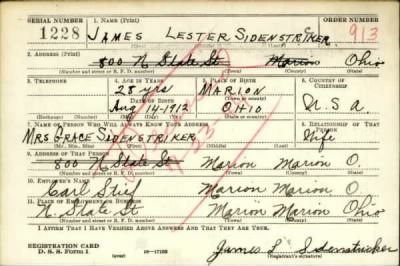 SERIAL NUMBER 1. NAME (Print) ORDER NUMBER
1228 JAMES LESTER SIDENSTRIKER 913
(First) (Middle) (Last)
2. ADDRESS (Print)
800 N State St Marion Ohio
(Number and street or R. F. D. number) (Town) (County) (State)
3. TELEPHONE 4. AGE IN YEARS 5. PLACE OF BIRTH 6. COUNTRY OF CITIZENSHIP
28 yrs MARION
DATE OF BIRTH (Town or county)
Aug 14-1912 OHIO. U.S.A.
(Exchange) (Number) (Mo.) (Day) (Yr.) (State or country)
7. NAME OF PERSON WHO WILL ALWAYS KNOW YOUR ADDRESS 8. RELATIONSHIP OF THAT PERSON
MRS GRACE SIDENSTRIKER Wife
(Mr., Mrs., Miss) (First) (Middle) (Last)
9. ADDRESS OF THAT PERSON
800 N State St Marion Marion O.
(Number and street or R. F. D. number) (Town) (County) (State)
10. EMPLOYER'S NAME
Carl Marion Marion O
11. PLACE OF EMPLOYMENT OR BUSINESS
N. State St Marion Marion Ohio
(Number and street or R. F. D. number) (Town) (County) (State)
I AFFIRM THAT I HAVE VERIFIED ABOVE ANSWERS AND THAT THEY ARE TRUE.
REGISTRATION CARD
D. S. S. Form 1 (over) 16-17105 James L. Sidenstricker
(Registrant's signature)